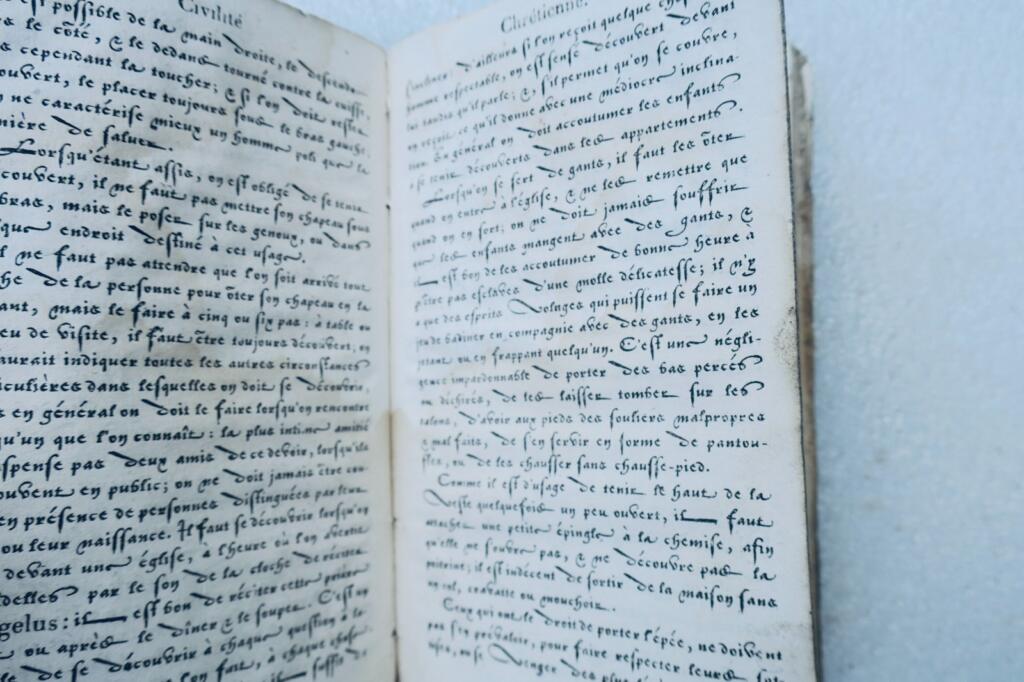 Civilité
est possible de la main droite, le descendre
le côté, & le dedans tourné contre la cuisse,
cependant la toucher; & si l'on doit rester
ouvert, le placer toujours sous le bras gauche;
ne caractérise mieux un homme poli que la
nière de saluer.
Lorsqu'étant assis, on est obligé de se tenir
couvert, il ne faut pas mettre son chapeau sous
bras, mais le poser sur les genoux, ou dans
que endroit destiné à cet usage.
l ne faut pas attendre que l'on soit arrivé tout
he de la personne pour ôter son chapeau en la
ant, mais le faire à cinq ou six pas: à table ou
eu de visite, il faut être toujours découvert; on
aurait indiquer toutes les autres circonstances
iculières dans lesquelles on doit se découvrir,
s en général on doit le faire lorsqu'on rencontre
qu'un que l'on connaît: la plus intime amitié
spense pas deux amis de ce devoir, lorsqu'ils
ouvent en public; on ne doit jamais être cou-
en présence de personnes distinguées par leur
ou leur naissance. Il faut se découvrir lorsqu'on
devant une église, à l'heure où l'on avertit
delles par le son de la cloche de réciter
gelus: il est bon de réciter cette prière
ou après le dîner & le souper. C'est un
de se découvrir à chaque question à la
l'on fait, à chaque chose
suffit de
Chrétienne.
d'ailleurs si l'on reçoit quelque
homme respectable, on est sensé découvert devant
lui tandis qu'il parle; &, s'il permet qu'on se couvre,
on reçoit ce qu'il donne avec une médiocre inclina-
tion. En général on doit accoutumer les enfants
à se tenir découverts dans les appartements.
Lorsqu'on se sert de gants, il faut les ôter
quand on entre à l'église, & ne les remettre que
quand on en sort; on ne doit jamais souffrir
que les enfants mangent avec des gants, &
il est bon de les accoutumer de bonne heure à
n'être pas esclaves d'une molle délicatesse; il n'y
a que des esprits volages qui puissent se faire un
jeu de badiner en compagnie avec des gants, en les
jettant ou en frappant quelqu'un. C'est une négli-
gence impardonnable de porter des bas percés
ou déchirés, de les laisser tomber sur les
talons, d'avoir aux pieds des souliers malpropres
& mal faits, de s'en servir en forme de pantou-
fles, ou de les chausser sans chausse-pied.
Comme il est d'usage de tenir le haut de la
veste quelquefois un peu ouvert, il faut
attacher une petite épingle à la chemise, afin
qu'elle ne s'ouvre pas, & ne découvre pas la
poitrine; il est indécent de sortir de la maison sans
un col, cravatte ou mouchoir.
Ceux qui ont le droit de porter l'épée, ne doivent
pas s'en prévaloir, pour faire respecter leurs
ou se venger des plus